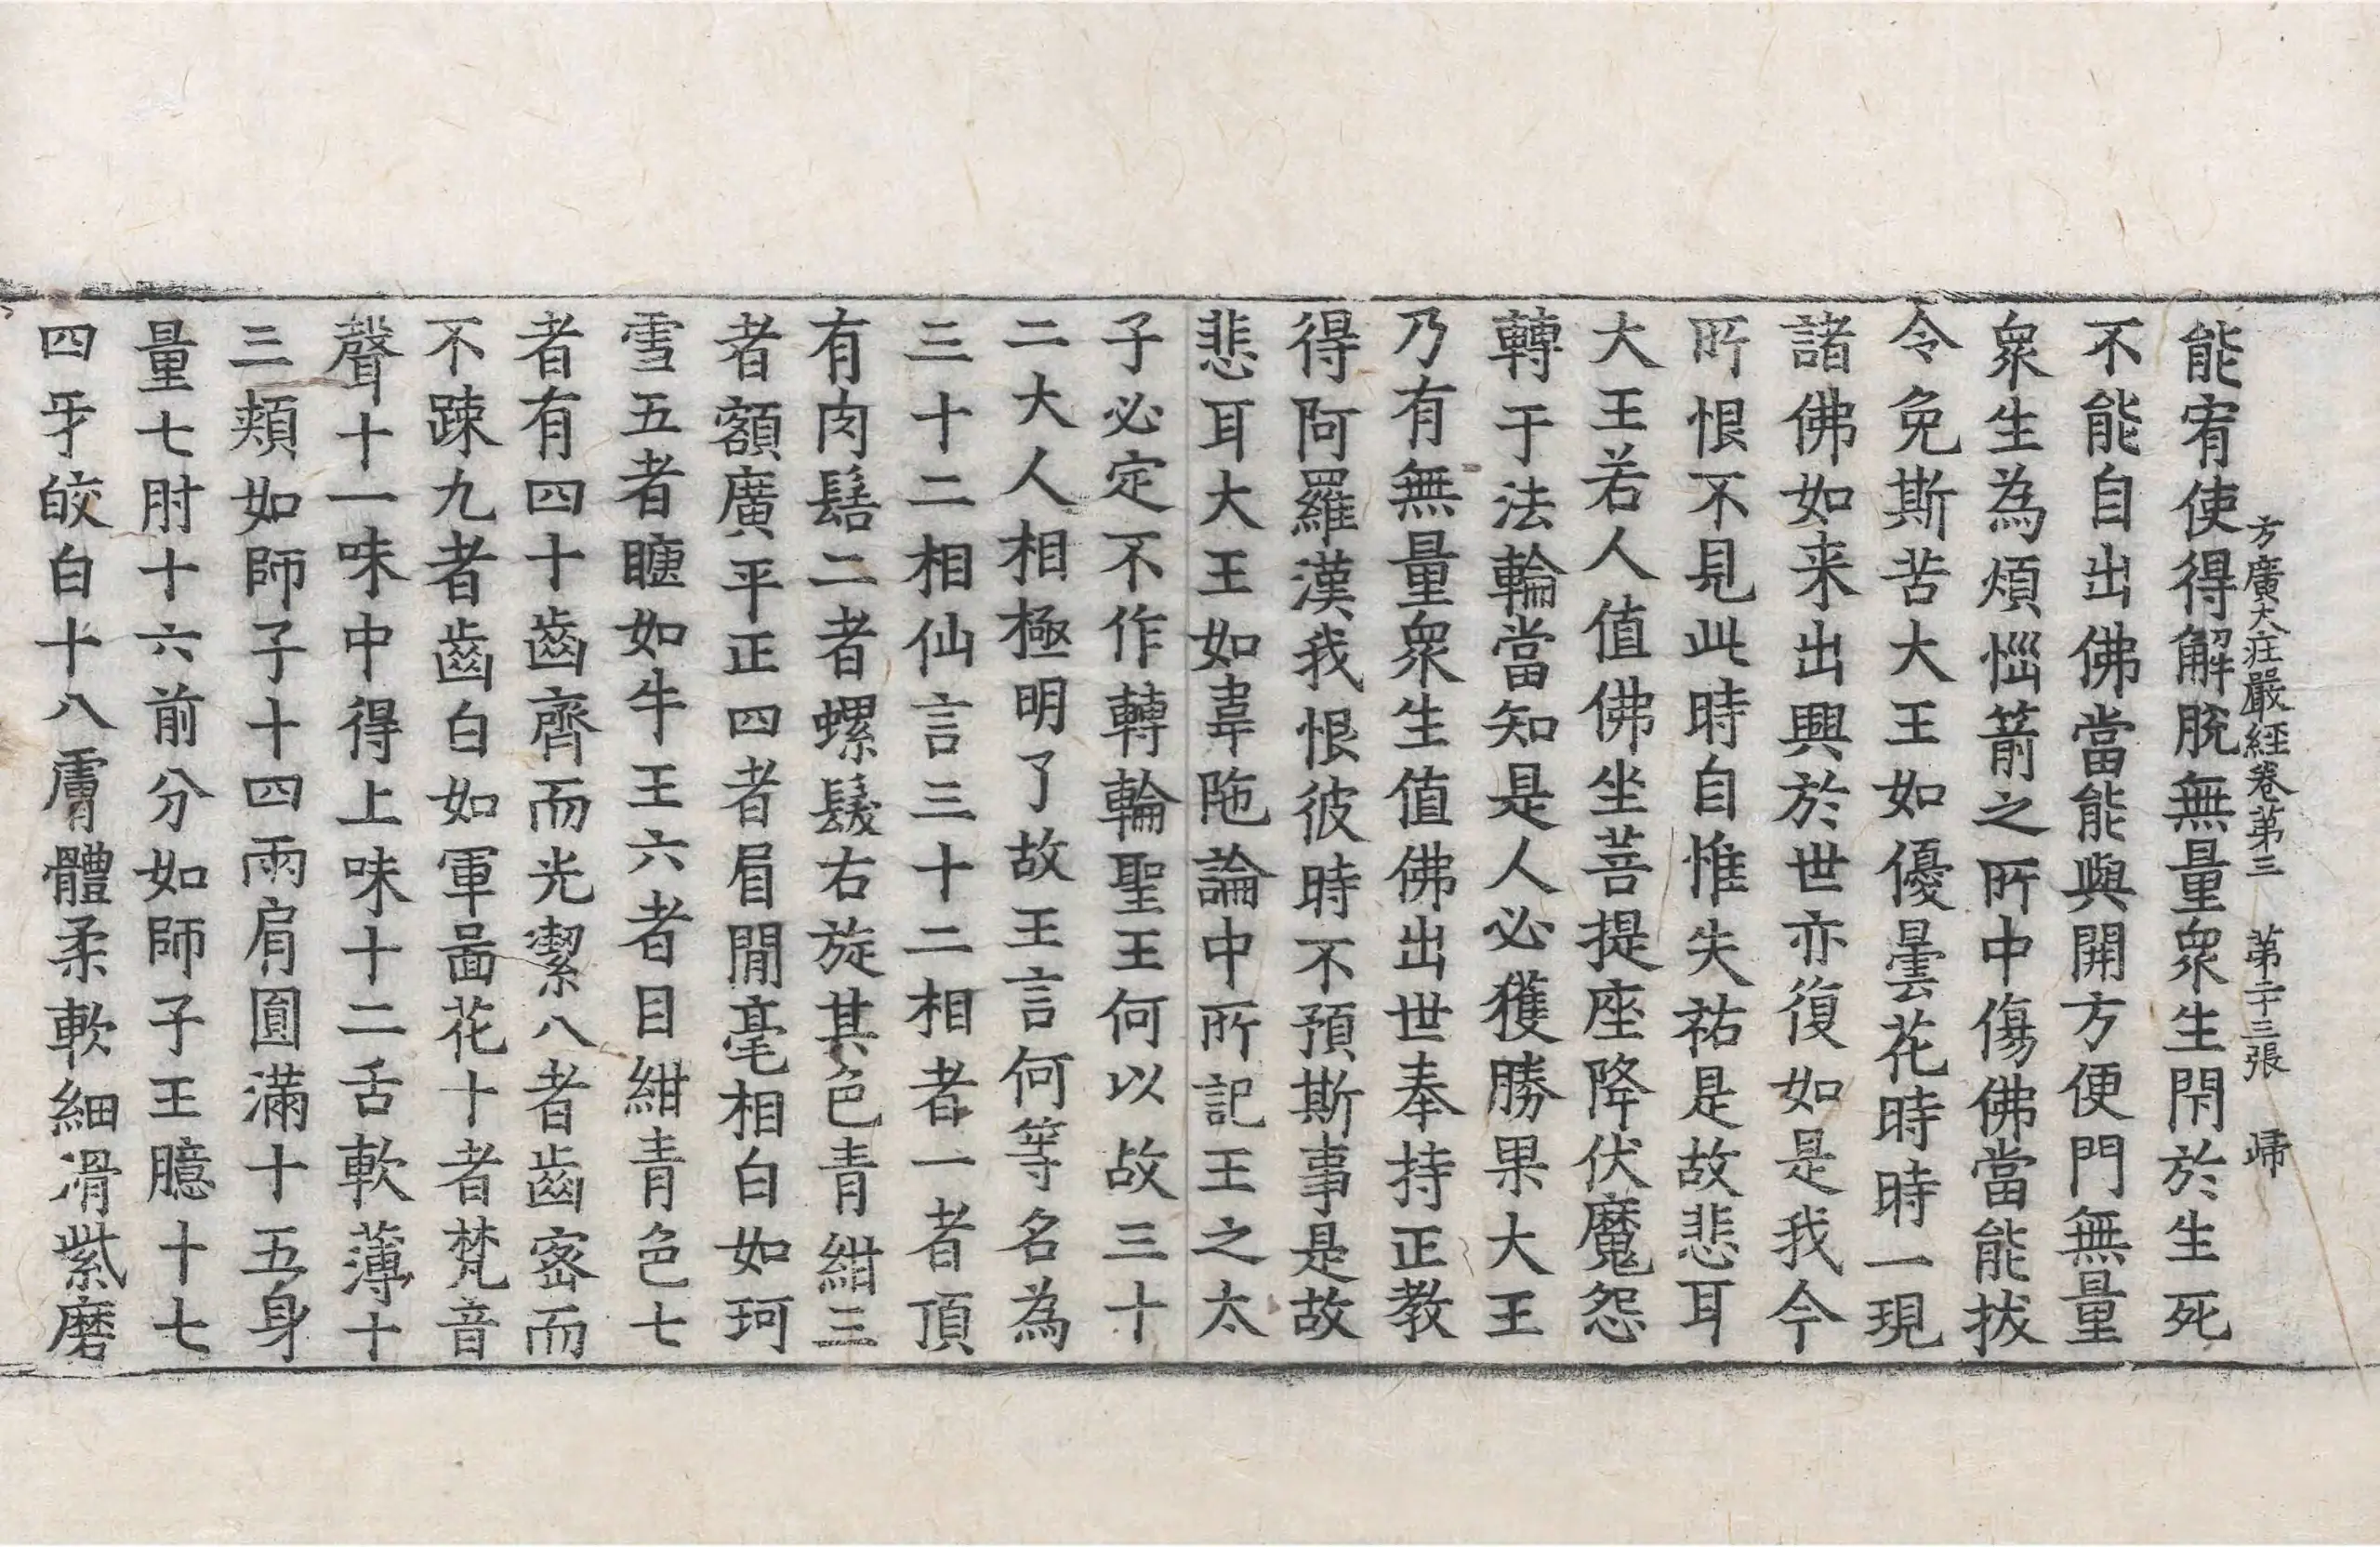 方廣大庄嚴經卷苐三 苐二十三張 歸
能宥使得解脫無量衆生閇於生死
不能自出佛當能與開方便門無量
衆生為煩惱箭之所中傷佛當能拔
令免斯苦大王如優曇花時時一現
諸佛如来出興於世亦復如是我今
所恨不見此時自惟失祐是故悲耳
大王若人值佛坐菩提座降伏魔怨
轉于法輪當知是人必獲勝果大王
乃有無量衆生值佛出世奉持正教
得阿羅漢我恨彼時不預斯事是故
悲耳大王如韋陁論中所記王之太
子必定不作轉輪聖王何以故三十
二大人相極明了故王言何等名為
三十二相仙言三十二相者一者頂
有肉髻二者螺髮右旋其色青紺三
者額廣平正四者眉間毫相白如珂
雪五者睫如牛王六者目紺青色七
者有四十齒齊而光潔八者齒宻而
不踈九者齒白如軍啚花十者梵音
聲十一味中得上味十二舌軟薄十
三頰如師子十四兩肩圓滿十五身
量七肘十六前分如師子王臆十七
四牙皎白十八膚體柔軟細滑紫磨